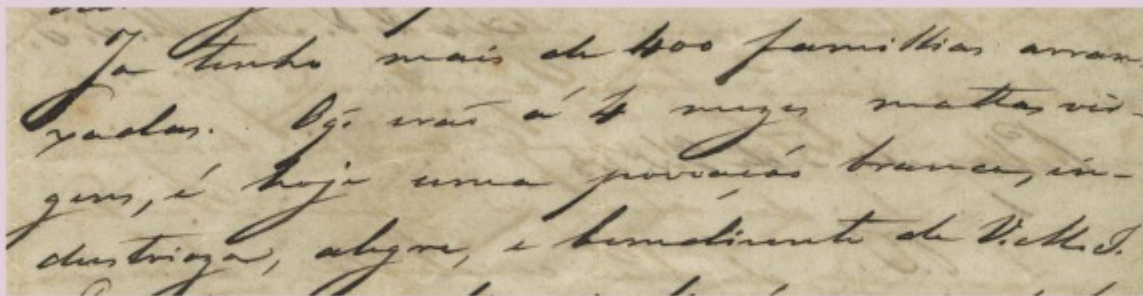 Ja tenho mais de 400 familhias arran-
xadas. O q̃ erão á 4 mezes mattas vir-
gens, é hoje uma povoação branca, in-
dustrioza, alegre, e bemdizente de V.M.I.